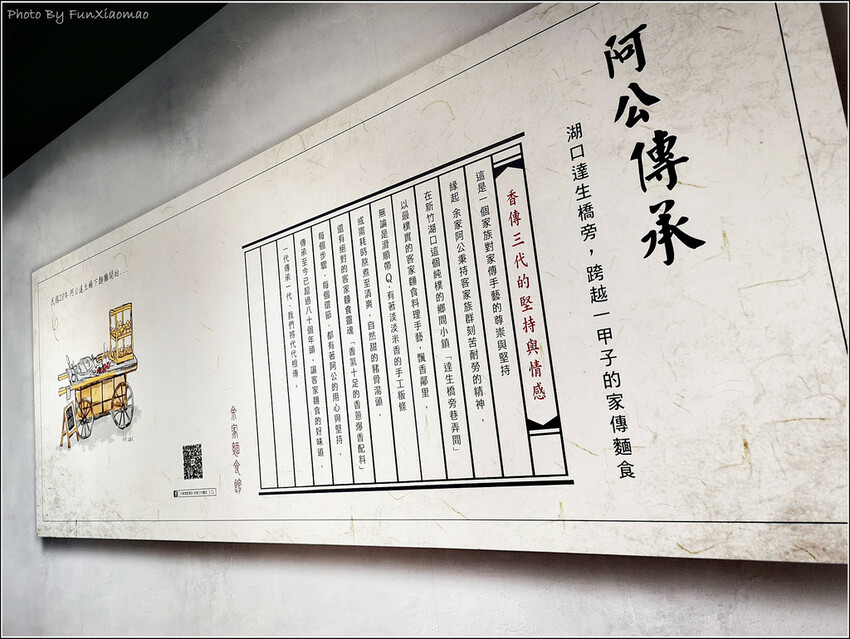 Photo By FunXiaomao
阿公傳承
湖口達生橋旁，跨越一甲子的家傳麵食
香傳三代的堅持與情感
這是一個家族對家傳手藝的尊崇與堅持
緣起 余家阿公秉持客家族群刻苦耐勞的精神，
在新竹湖口這個純樸的鄉間小鎮「達生橋旁巷弄間」
以最樸實的客家麵食料理手藝，飄香鄰里，
無論是滑順帶Q、有著淡淡米香的手工粄條
或需耗時熬煮至清爽、自然甜的豬骨湯頭，
還有絕對的客家麵食靈魂「香氣十足的香蔥爆香配料」
每個步驟、每個環節，都有著阿公的用心與堅持，
傳承至今已超過八十個年頭，讓客家麵食的好味道，
一代傳承一代，我們將代代相傳。
余家麵食館
民國28年 阿公達生橋下麵攤開始...